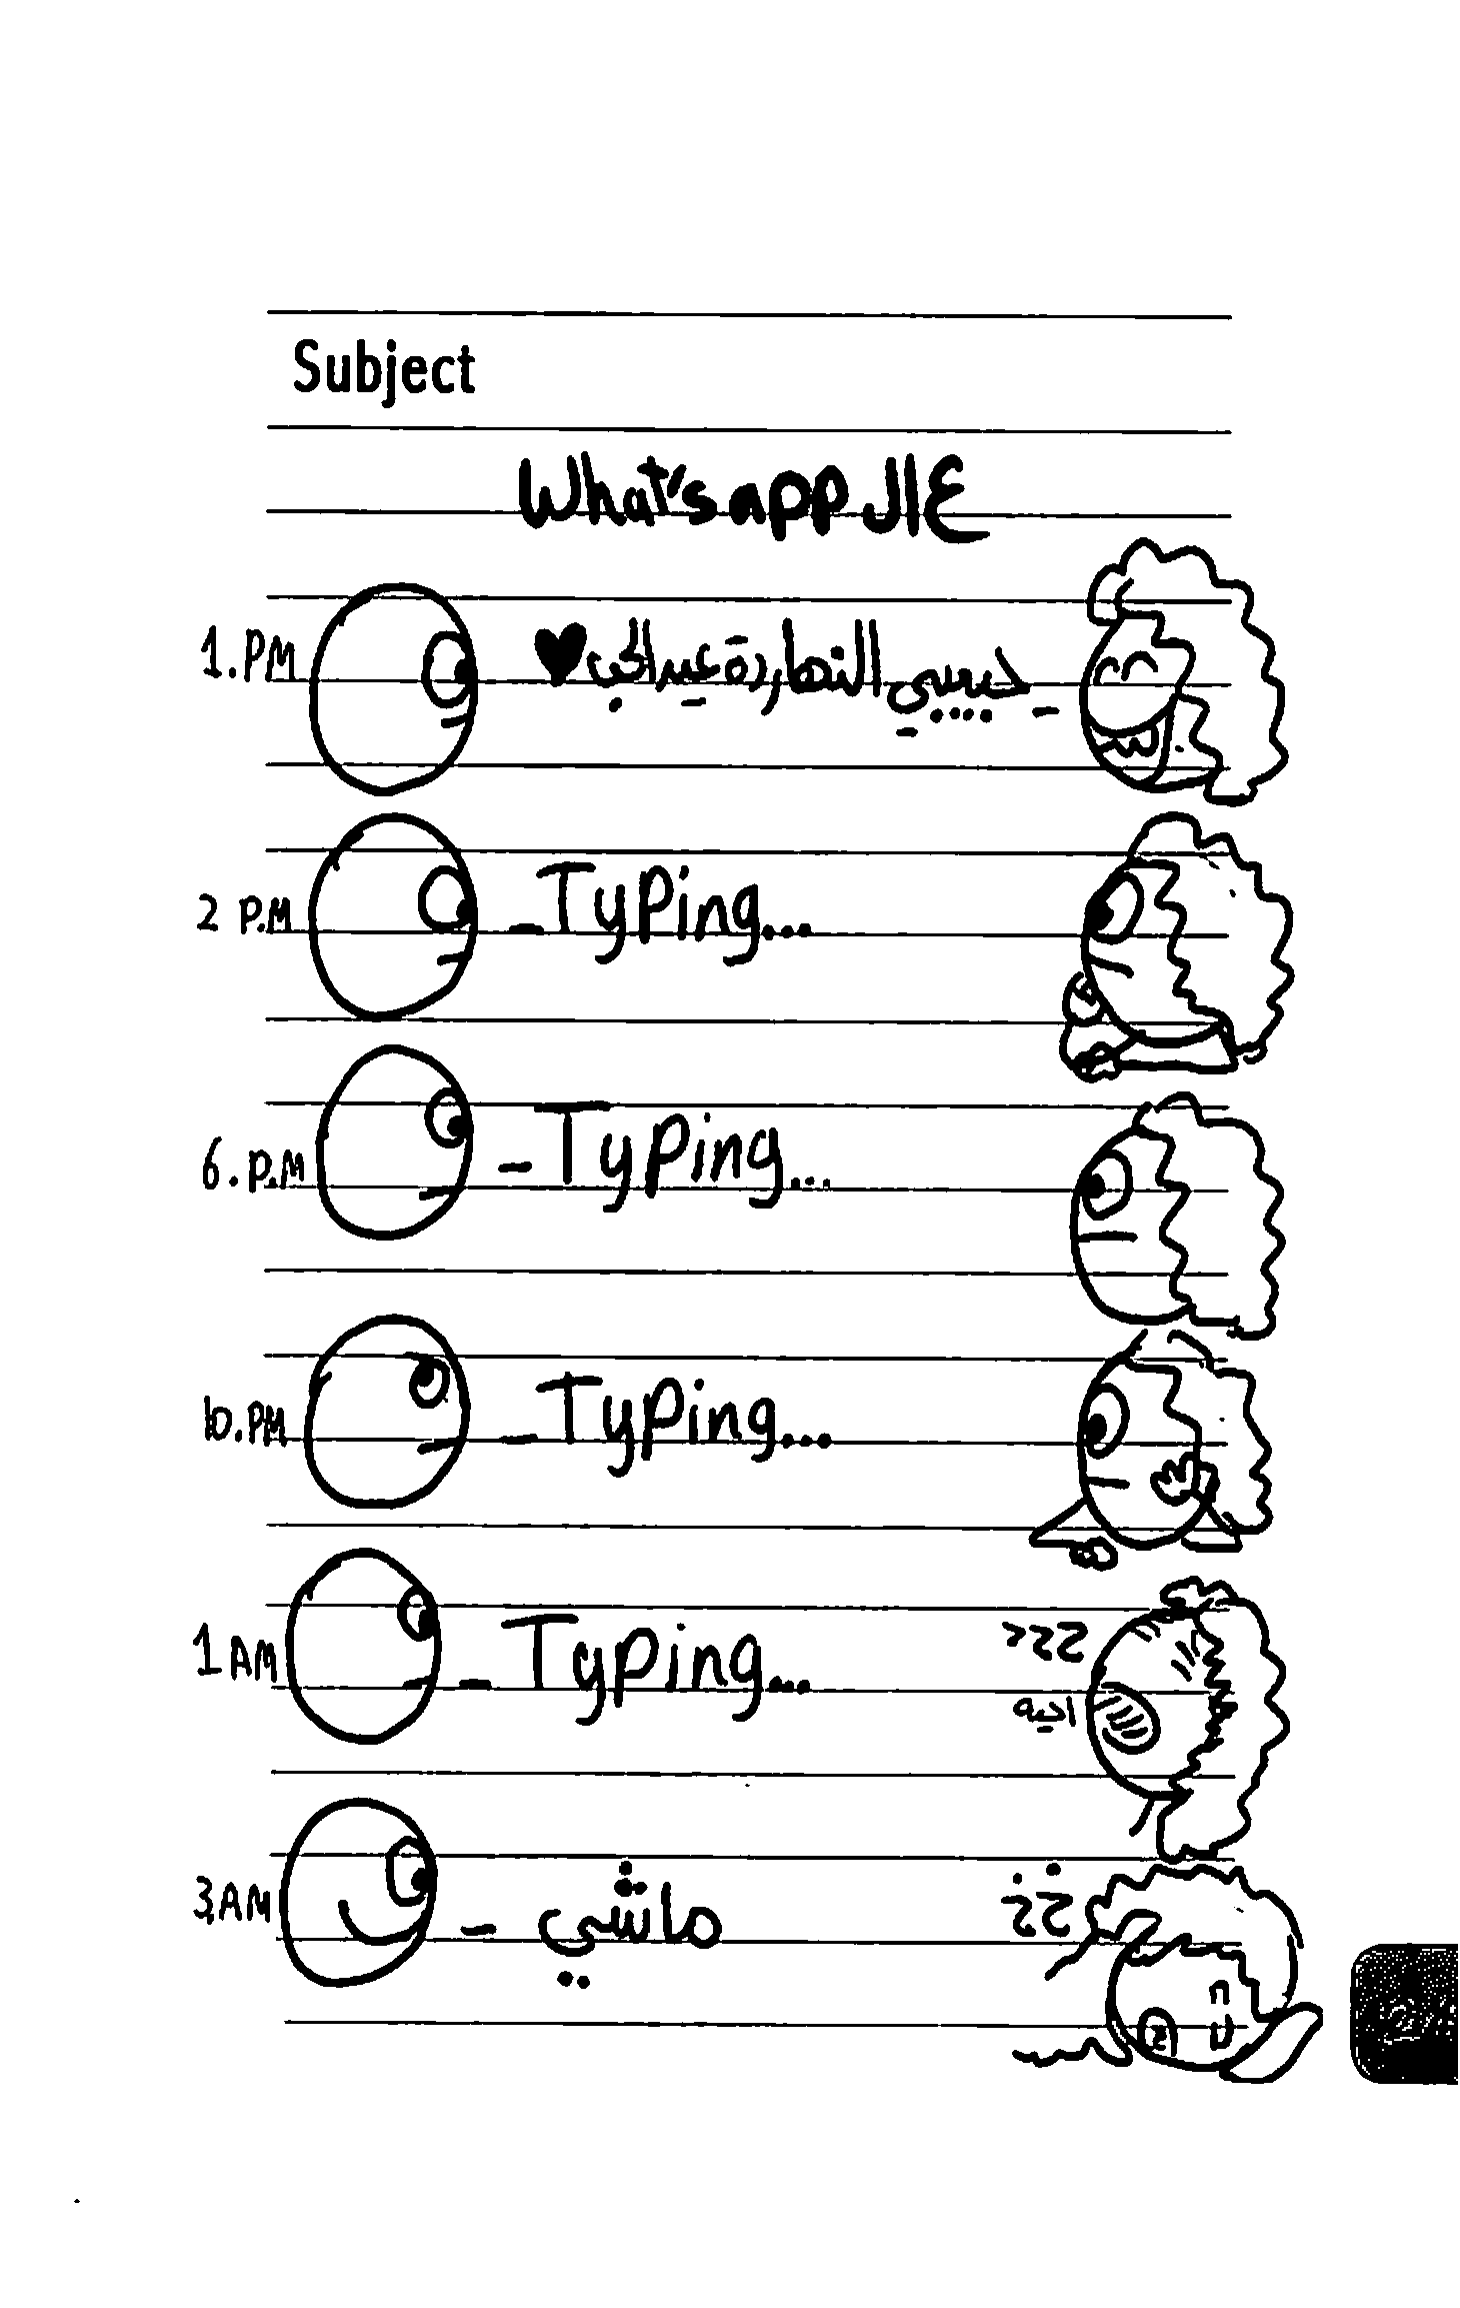 Subject
عال What'sapp
1.PM
- حبيبي النهاردة عيد الحب ♥
2 P.M
- Typing...
6.P.M
- Typing...
10.PM
- Typing...
1 AM
- Typing...
احيه
3AM
- ماشي